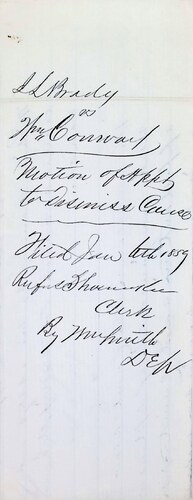 J L Brady
vs
Wm Conway
Motion of Appt
to dismiss Cause
Filed Jan 10th 1859
Rufus Shoemaker
Clerk
By Wm Smith
Dep